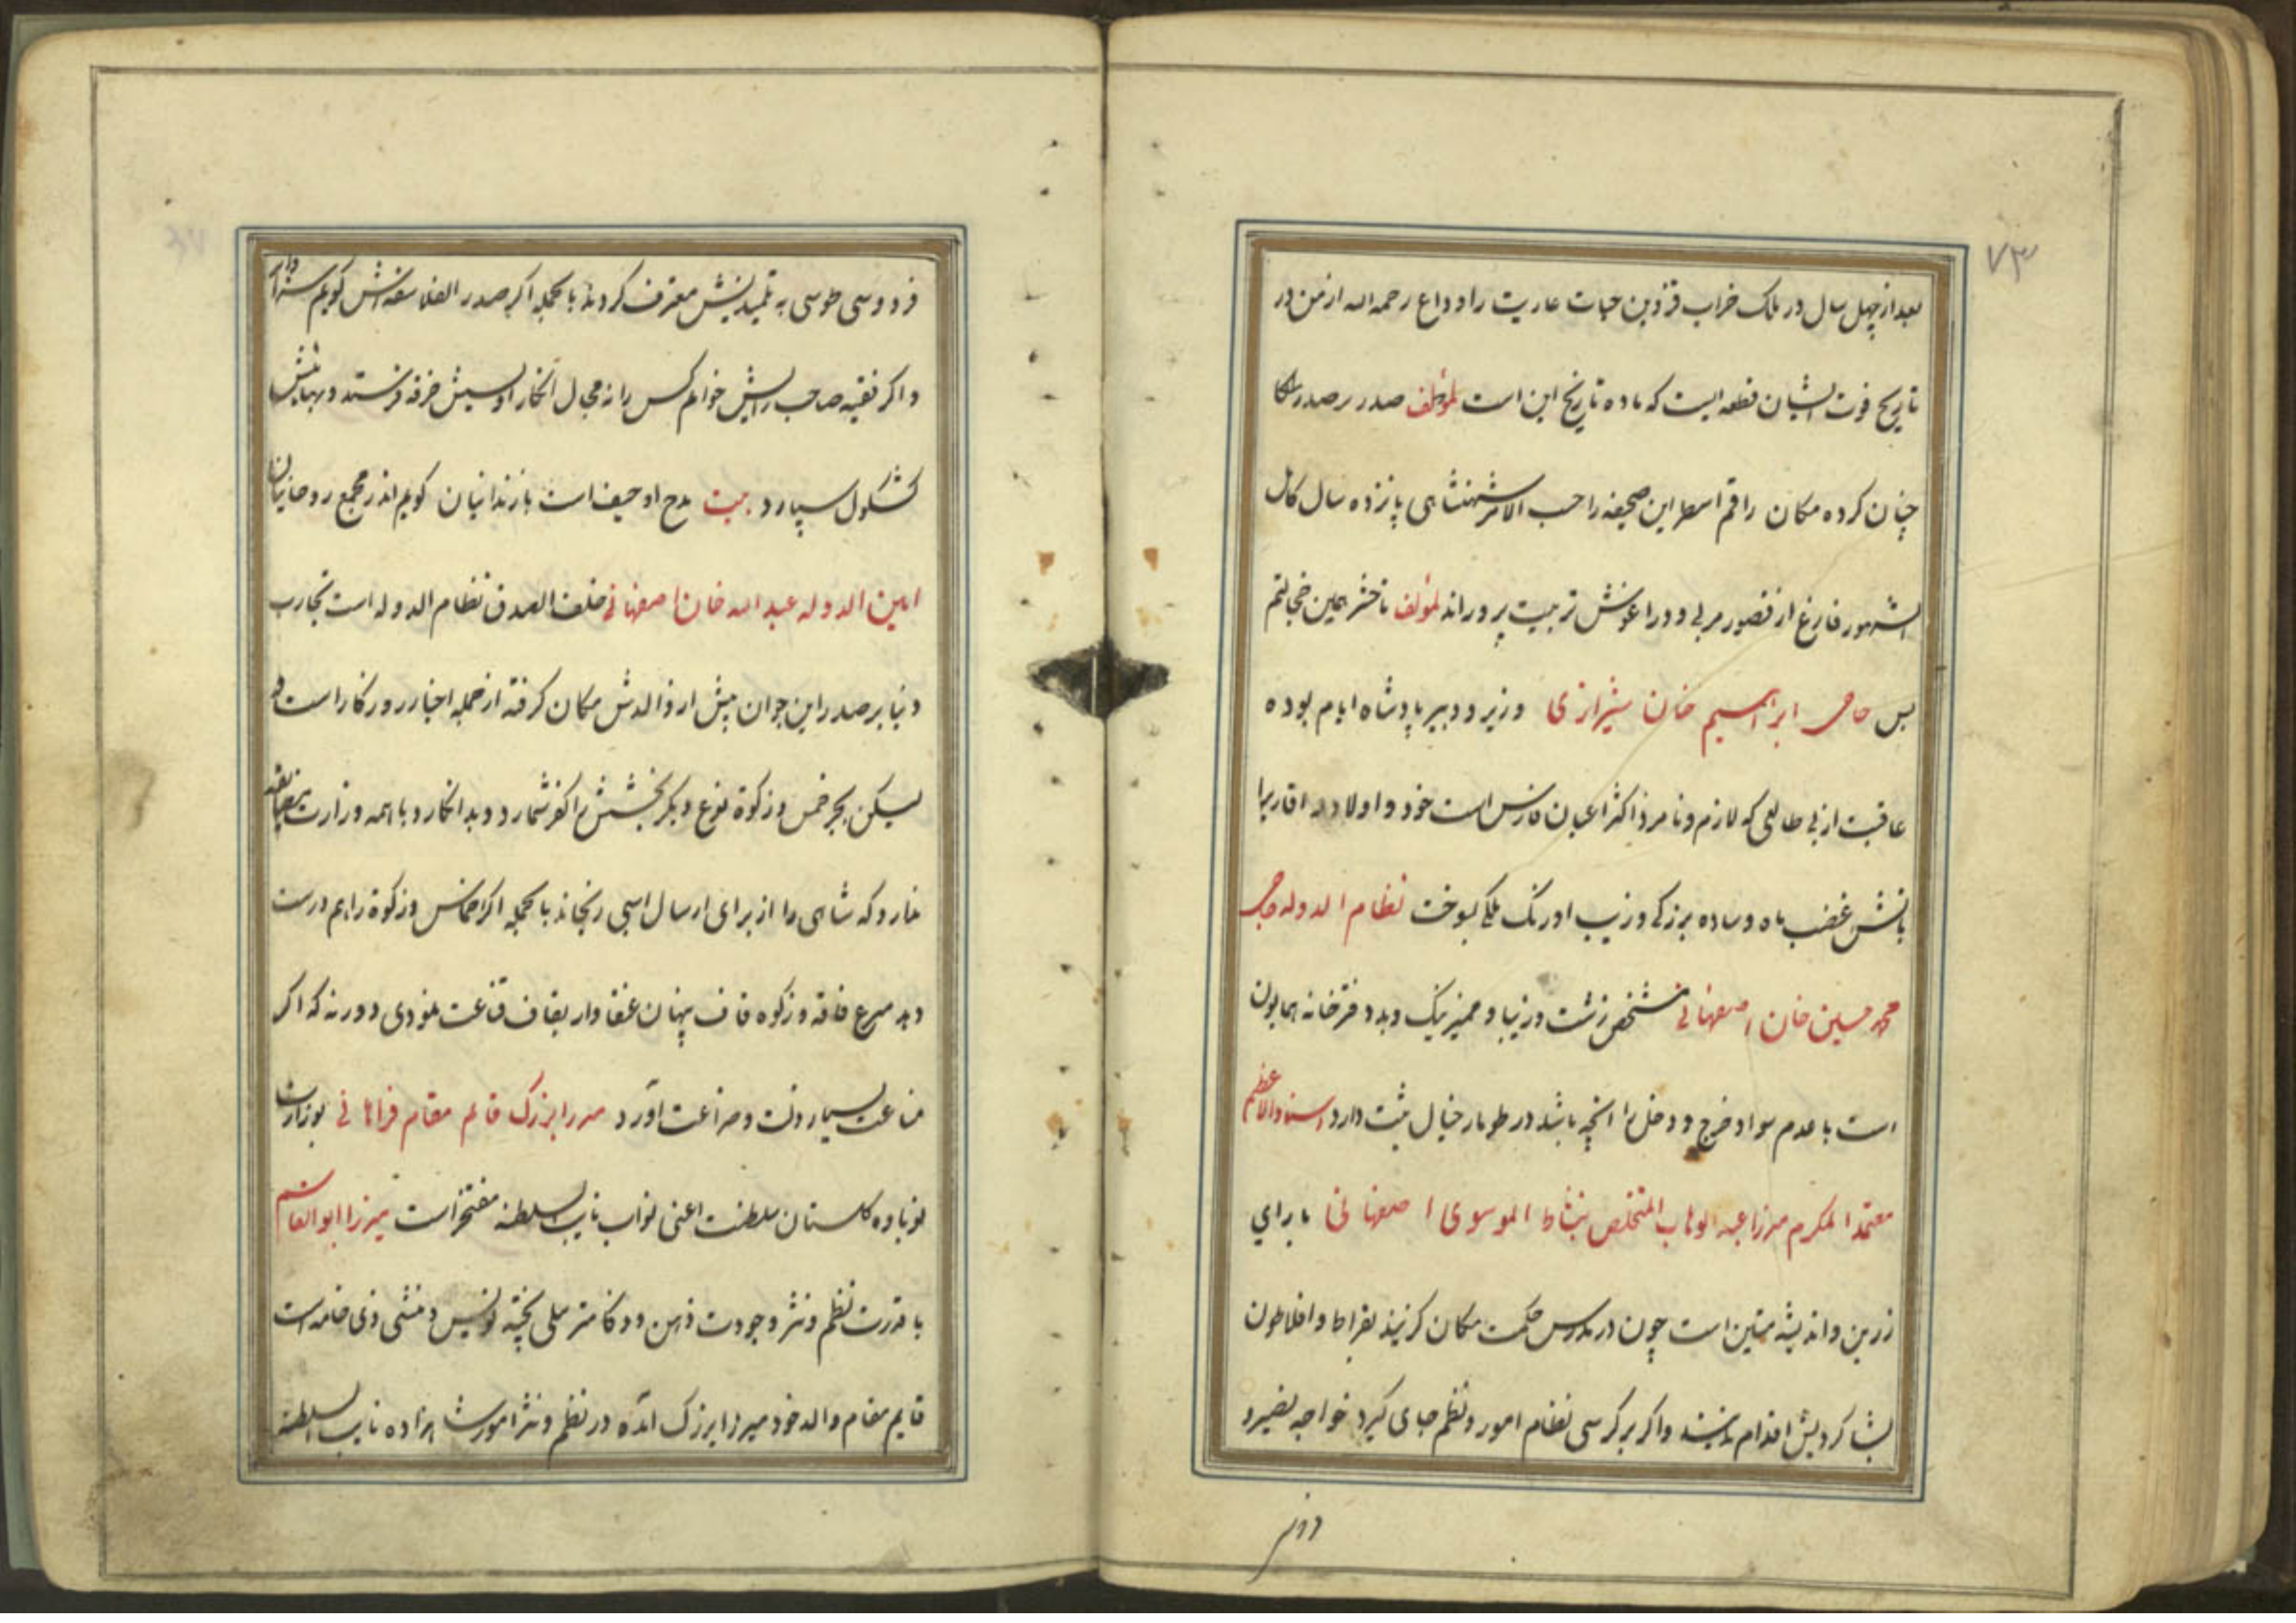 ۷۳
بعد از چهل سال در ملک خراب قزوین حیات عاریت را وداع رحمه الله از من در
تاریخ فوت ایشان قطعه ایست که ماده تاریخ این است لمؤلفه صدر بر صدر
چنان کرده مکان راقم اسطر این صحیفه را حسب الامر شهنشاهی پانزده سال کامل
الشهور فارغ از قصور مربی و در اغوش تربیت پرورانده لمؤلفه تا حشر همین خجالتم
بس حاجی ابراهیم خان شیرازی وزیر و دبیر پادشاه ایام بوده
عاقبت از بی طالعی که لازم و نامزد اکثر اعیان فارس است خود و اولاد و اقاربرا
باتش غضب ماه وساده بزرکی و زیب اورنک ملکی بسوخت نظام الدوله حاجی
محمد حسین خان اصفهانی مشخص زشت و زیبا و ممیز نیک و بد دفترخانه همایون
است با عدم سواد خرج و دخل را انچه باشد در طومار خیال ثبت دارد استاد الاعظم
معتمد المکرم میرزا عبد الوهاب المتخلص بنشاط الموسوی اصفهانی با رای
زرین و اندیشه متین است چون در مدرس حکمت مکان کزیند بقراط و افلاطون
بشاکردیش اقدام نمایند و اکر بر کرسی نظام امور و نظم جای کیرد خواجه نصیر و
فردوسی طوسی به تلمیذیش معترف کردند بالجمله اکر صدر الفلاسفه اش کویم سزد
و اکر فقیه صاحب رایش خوانم کس را نه مجال انکار اویسش خرقه فرستد و بهائیش
کشکول سپارد بیت مدح او حیف است با زندانیان کویم اندر مجمع روحانیان
امین الدوله عبد الله خان اصفهانی خلف الصدق نظام الدوله است تجارب
دنیا بر صدر این جوان پیش از والدش مکان کرفته از جمله اخیار روزکار است و
لیکن بجز خمس و زکوة نوع دیکر بخشش را کفر شمارد و بد انکارد با همه وزارت
ندارد که شاهی را از برای ارسال اسبی رنجاند بالجمله اکر اخماس و زکوة را هم درست
دهد مرغ فاقه و زکوه قاف پنهان عنقا وار بقاف قناعت غنودی و ورنه که اکر
مناعت بسیار رفت و ضراعت آورد میرزا بزرک قایم مقام فراهانی بوزارت
نوباوه کلستان سلطنت اعنی نواب نایب السلطنه مفتخر است میرزا ابو القاسم
با قدرت نظم و نثر و جودت ذهن و ذکا مترسلی پخته نویس و منشی ذی خامه است
قایم مقام والد خود میرزا بزرک آمده در نظم و نثر امور شاهزاده نایب السلطنه